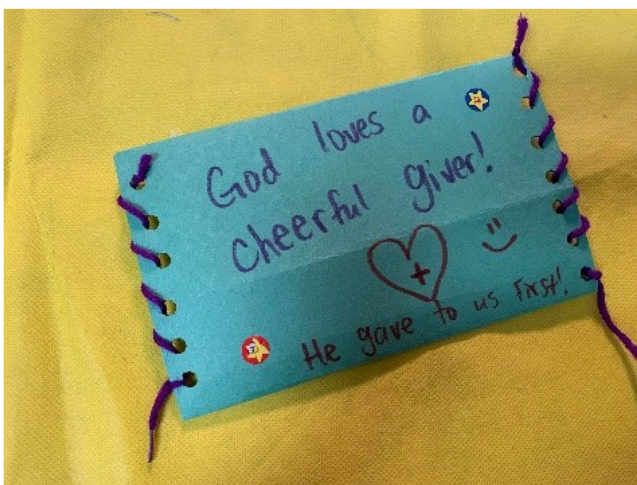 God loves a
cheerful giver!
He gave to us first!